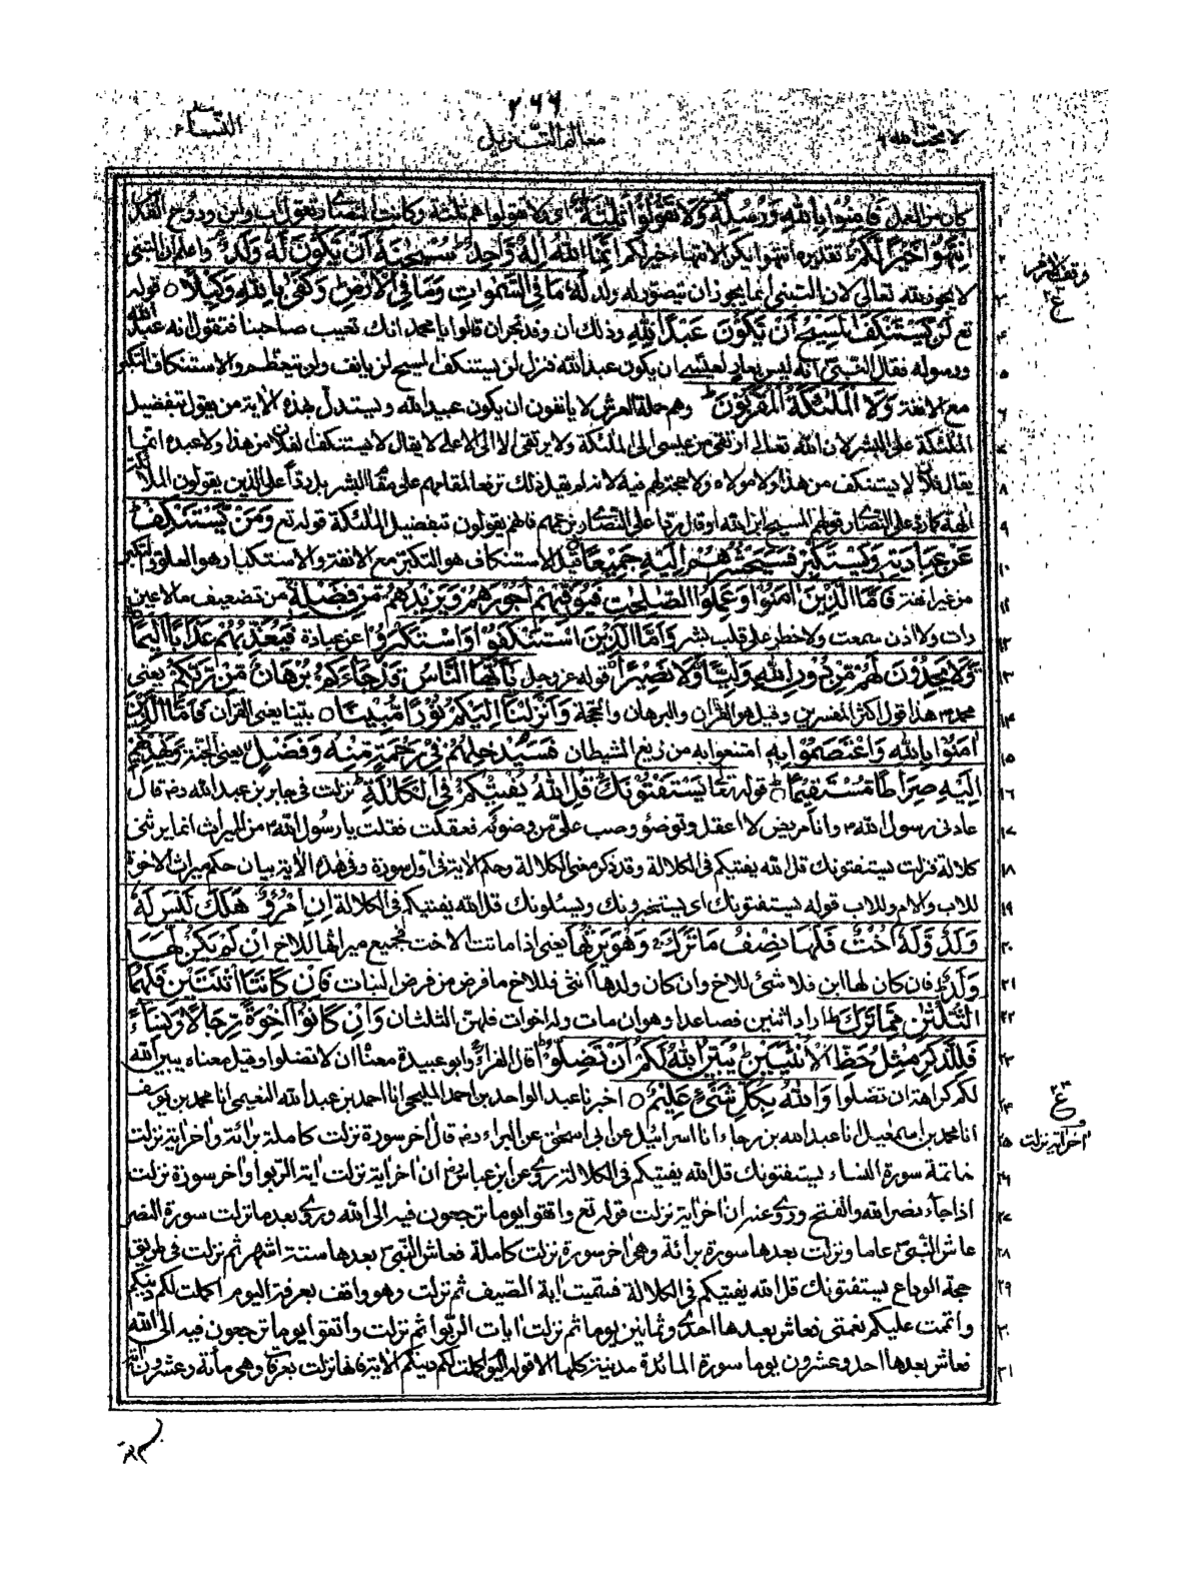 ٢٦٦
لا يحب الله ٦ معالم التنزيل النساء
كان من العمل فَاٰمِنُوْا بِاللّٰهِ وَرُسُلِهٖ وَلَا تَقُوْلُوْا ثَلٰثَةٌ اى لا تقولوا هم ثلثة وكانت النصارى تقول اب وابن وروح القدس
اِنْتَهُوْا خَيْرًا لَّكُمْ تقديره انتهوا يكن الانتهاء خيرا لكم اِنَّمَا اللّٰهُ اِلٰهٌ وَّاحِدٌ سُبْحٰنَهٗٓ اَنْ يَّكُوْنَ لَهٗ وَلَدٌ واعلم ان التبنى
لا يجوز لله تعالى لان التبنى انما يجوز لمن يتصور له ولد لَهٗ مَا فِى السَّمٰوٰتِ وَمَا فِى الْاَرْضِ وَكَفٰى بِاللّٰهِ وَكِيْلًا ○ قوله
تع لَنْ يَّسْتَنْكِفَ الْمَسِيْحُ اَنْ يَّكُوْنَ عَبْدًا لِّلّٰهِ وذلك ان وفد نجران قالوا يا محمد انك تعيب صاحبنا فتقول انه عبد الله
ورسوله فقال النبى انه ليس بعار لعيسى ان يكون عبد الله فنزل لن يستنكف المسيح لن يانف ولن يتعظم والاستنكاف التكبر
مع الانفة وَلَا الْمَلٰٓئِكَةُ الْمُقَرَّبُوْنَ وهم حملة العرش لا يانفون ان يكون عبيد الله ويستدل بهذه الاية من يقول بتفضيل
الملئكة على البشر لان الله تعالى ارتقى من عيسى الى الملئكة ولا يرتقى الا الى الاعلى لا يقال لا يستنكف فلان من هذا ولا عبده انما
يقال فلان لا يستنكف من هذا ولا مولاه ولا حجة لهم فيه لانه لم يقل ذلك رفعا لمقامهم على مقام البشر بل ردا على الذين يقولون الملائكة
الهة كما رد على النصارى قولهم المسيح ابن الله او قال ردا على النصارى بزعمهم فانهم يقولون بتفضيل الملئكة قوله تع وَمَنْ يَّسْتَنْكِفْ
عَنْ عِبَادَتِهٖ وَيَسْتَكْبِرْ فَسَيَحْشُرُهُمْ اِلَيْهِ جَمِيْعًا قيل الاستنكاف هو التكبر مع الانفة والاستكبار هو العلو والتكبر
من غير انفة فَاَمَّا الَّذِيْنَ اٰمَنُوْا وَعَمِلُوا الصّٰلِحٰتِ فَيُوَفِّيْهِمْ اُجُوْرَهُمْ وَيَزِيْدُهُمْ مِّنْ فَضْلِهٖ من تضعيف ما لا عين
رات ولا اذن سمعت ولا خطر على قلب بشر وَاَمَّا الَّذِيْنَ اسْتَنْكَفُوْا وَاسْتَكْبَرُوْا عن عبادة فَيُعَذِّبُهُمْ عَذَابًا اَلِيْمًا
وَّلَا يَجِدُوْنَ لَهُمْ مِّنْ دُوْنِ اللّٰهِ وَلِيًّا وَّلَا نَصِيْرًا قوله عز وجل يٰٓاَيُّهَا النَّاسُ قَدْ جَآءَكُمْ بُرْهَانٌ مِّنْ رَّبِّكُمْ يعنى
محمد هذا قول اكثر المفسرين وقيل هو القران والبرهان والحجة وَاَنْزَلْنَآ اِلَيْكُمْ نُوْرًا مُّبِيْنًا ○ بينا يعنى القران فَاَمَّا الَّذِيْنَ
اٰمَنُوْا بِاللّٰهِ وَاعْتَصَمُوْا بِهٖ امتنعوا به من زيغ الشيطان فَسَيُدْخِلُهُمْ فِيْ رَحْمَةٍ مِّنْهُ وَفَضْلٍ يعنى الجنة وَّيَهْدِيْهِمْ
اِلَيْهِ صِرَاطًا مُّسْتَقِيْمًا قوله تعا يَسْتَفْتُوْنَكَ قُلِ اللّٰهُ يُفْتِيْكُمْ فِى الْكَلٰلَةِ نزلت فى جابر بن عبد الله رض قال
عادنى رسول الله وانا مريض لا اعقل وتوضؤ وصب على من وضوئه فعقلت فقلت يا رسول الله من الميراث انما يرثنى
كلالة فنزلت يستفتونك قل الله يفتيكم فى الكلالة وقد ذكر معنى الكلالة وحكم الاية فى اول سورة وفى هذه الاية بيان حكم ميراث الاخوة
للاب والام وللاب قوله يستفتونك اى يستخبرونك ويسئلونك قل الله يفتيكم فى الكلالة اِنِ امْرُؤٌا هَلَكَ لَيْسَ لَهٗ
وَلَدٌ وَّلَهٗٓ اُخْتٌ فَلَهَا نِصْفُ مَا تَرَكَ وَهُوَ يَرِثُهَآ يعنى اذا ماتت الاخت فجميع ميراثها للاخ اِنْ لَّمْ يَكُنْ لَّهَا
وَلَدٌ فان كان لها ابن فلا شئ للاخ وان كان ولدها انثى فللاخ ما فرض من فرض البنات فَاِنْ كَانَتَا اثْنَتَيْنِ فَلَهُمَا
الثُّلُثٰنِ مِمَّا تَرَكَ اراد اثنين فصاعدا وهو ان مات وله اخوات فلهن الثلثان وَاِنْ كَانُوْٓا اِخْوَةً رِّجَالًا وَّنِسَآءً
فَلِلذَّكَرِ مِثْلُ حَظِّ الْاُنْثَيَيْنِ يُبَيِّنُ اللّٰهُ لَكُمْ اَنْ تَضِلُّوْا قال الفراء وابو عبيدة معناه ان لا تضلوا وقيل معناه يبين الله
لكم كراهة ان تضلوا وَاللّٰهُ بِكُلِّ شَىْءٍ عَلِيْمٌ ○ اخبرنا عبد الواحد بن احمد المليحى انا احمد بن عبد الله النعيمى انا محمد بن يوسف
انا محمد بن اسمعيل انا عبد الله بن رجاء انا اسرائيل عن ابى اسحق عن البراء رض قال اخر سورة نزلت كاملة برائة واخر اية نزلت
خاتمة سورة النساء يستفتونك قل الله يفتيكم فى الكلالة روى عن ابن عباس ان اخر اية نزلت اية الربوا واخر سورة نزلت
اذا جاء نصر الله والفتح وروى عنه ان اخر اية نزلت قوله تع واتقوا يوما ترجعون فيه الى الله وروى بعد ما نزلت سورة النصر
عاش النبى عاما ونزلت بعدها سورة برائة وهى اخر سورة نزلت كاملة فعاش النبى بعدها ستة اشهر ثم نزلت فى طريق
حجة الوداع يستفتونك قل الله يفتيكم فى الكلالة فسميت اية الصيف ثم نزلت وهو واقف بعرفة اليوم اكملت لكم دينكم
واتممت عليكم نعمتى فعاش بعدها احدى وثمانين يوما ثم نزلت ايات الربوا ثم نزلت واتقوا يوما ترجعون فيه الى الله
فعاش بعدها احد وعشرون يوما سورة المائدة مدنية كلها الا قوله اليوم اكملت لكم دينكم الاية فانها نزلت بعرفة وهى مأئة وعشرون اية
ع
اخر اية نزلت